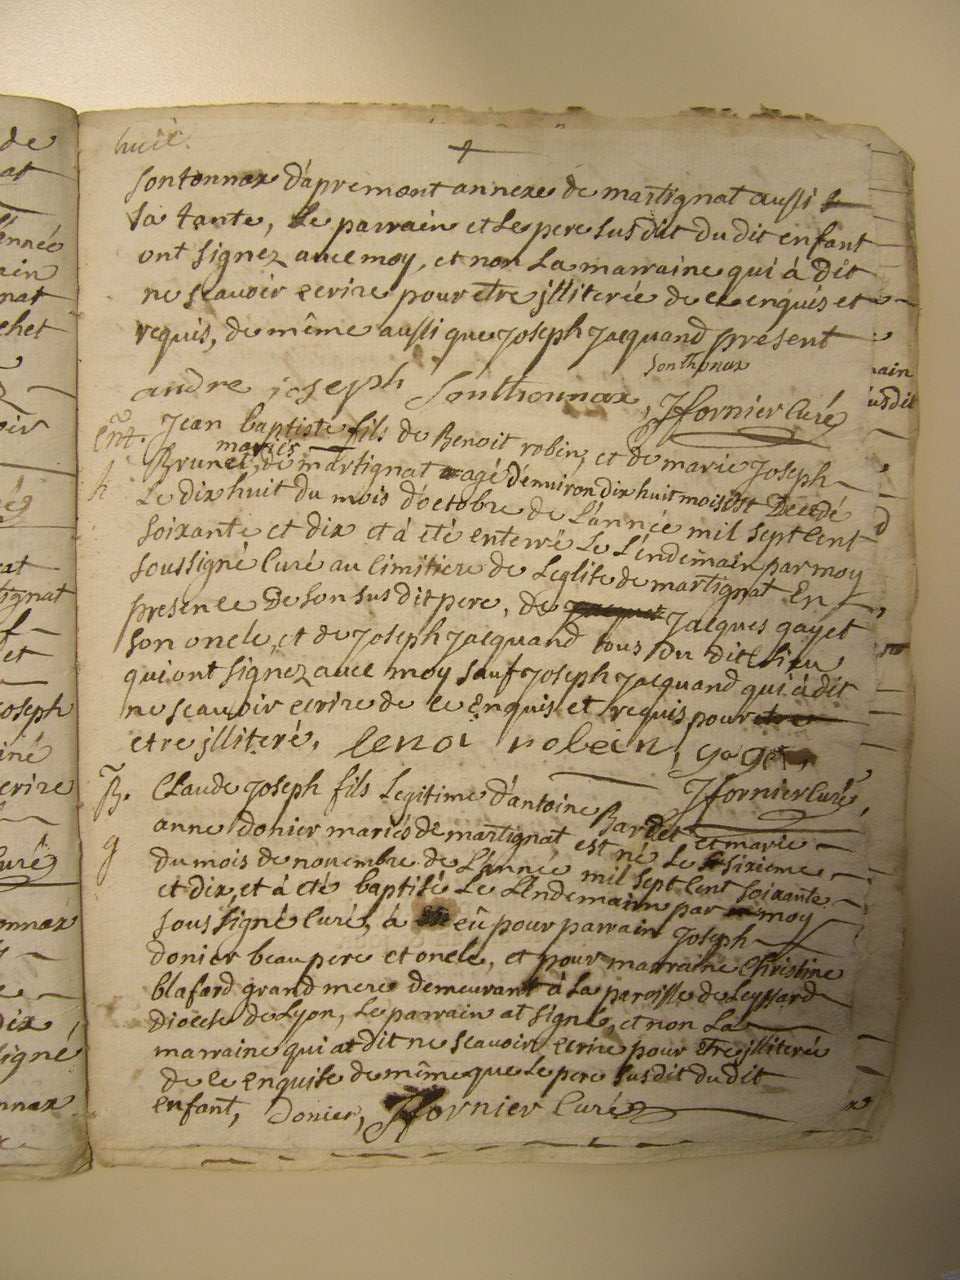 huit.
sontonnax d'apremont annexe de martignat aussi
sa tante, Le parrain et Le pere susdit du dit enfant
ont signez avec moy, et non La marraine qui á dit
ne sçavoir ecrire pour etre jlliterée de ce enquis et
requis, de même aussi que joseph jacquand present
sonthonax
andre joseph sonthonnax, Jfornier Curé
Ent. Jean baptiste fils de Benoit robin, et de marie Joseph
mariés
h Brunet, de martignat agé d'environ dix huit mois est Decedé
Le dix huit du mois d'octobre de L'année mil sept Cent
soixante et dix et á eté enterré Le Lendemain par moy
soussigné Curé au Cimitiere de Leglise de martignat En
presence De son susdit pere, de Jacques gayet
son oncle, et de Joseph jacquand tous Du dit Lieu
qui ont signez avec moy sauf Joseph jacquand qui á dit
ne scavoir ecrire de ce Enquis et requis pour
etre jlliteré,
Jfornier Curé,
B. Claude Joseph fils Legitime d'antoine Bardet et marie
g anne donier mariés de martignat est né Le sixieme
du mois de novembre de L'année mil sept Cent soixante
et dix, et á eté baptisé Le Lendemain par moy
soussigné Curé, á eû pour parrain Joseph
donier beau pere et oncle, et pour marraine Christine
blafard grand mere demeurant á La paroisse de Leyssard
Diocese de Lyon, Le parrain at signé, et non La
marraine qui at dit ne scavoir ecrire pour etre jlliterée
de ce enquise de même que Le pere susdit du dit
enfant, Donier, Jfornier Curé